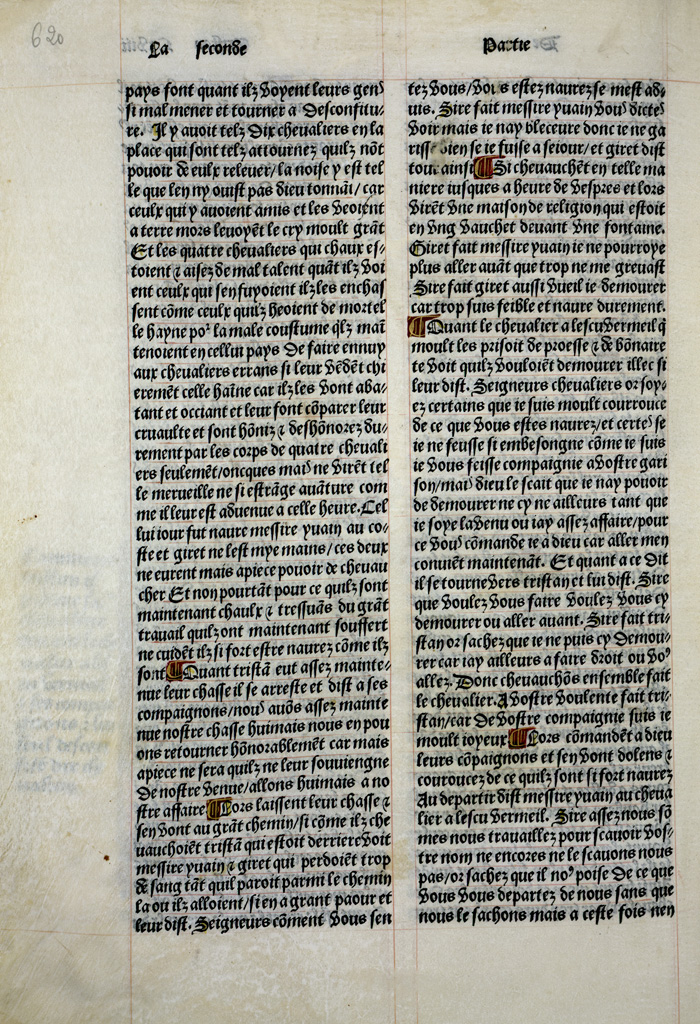 620
La seconde
Partie
pays font quant ilz voyent leurs gens
si mal mener et tourner a desconfitu/
re. Il y avoit telz dix chevaliers en la
place qui sont telz attournez quilz nōt
pouoir de eulx relever/la noise y est tel
le que len ny ouist pas dieu tonnāt/car
ceulx qui y avoient amis et les veoiēt
a terre mors levoyēt le cry moult grāt
Et les quatre chevaliers qui chaux es/
toient ⁊ aisez de mal talent quāt ilz voi
ent ceulx qui sen fuyoient ilz les enchas
sent cōme ceulx quilz heoient de mortel
le hayne po² la male coustume qlz maī
tenoient en cellui pays de faire ennuy
aux chevaliers errans si leur vēdēt chi
eremēt celle haīne car ilz les vont aba/
tant et occiant et leur font cōparer leur
cruaulte et sont hōniz ⁊ deshōnorez du/
rement par les corps de quatre chevali
ers seulemēt/oncques mais ne virēt tel
le merveille ne si estrāge avāture com
me il leur est advenue a celle heure. Cel
lui iour fut navre messire yvain au co/
ste et giret ne lest mye mains/ces deux
ne eurent mais apiece pouoir de chevau
cher Et non pourtāt pour ce quilz sont
maintenant chaulx ⁊ tressuās du grāt
travail quilz ont maintenant souffert
ne cuidēt ilz si fort estre naurez cōme ilz
sont ¶ Quant tristā eut assez mainte/
nue leur chasse il se arreste et dist a ses
compaignons/nous avōs assez mainte
nue nostre chasse huimais nous en pou
ons retourner hōnorablemēt car mais
apiece ne sera quilz ne leur souviengne
de nostre venue/allons huimais a no
stre affaire ¶ Lors laissent leur chasse ⁊
sen vont au grāt chemin/si cōme ilz che
vauchoiēt tristā qui estoit derriere voit
messire yvain ⁊ giret qui perdoiēt trop
de sang tāt quil paroit parmi le chemin
la ou ilz alloient/si en a grant paour et
leur dist. Seigneurs cōment vous sen
tez vous/vous estez naurez se mest ad/
vis. Sire fait messire yvain vous dictes
voir mais ie nay bleceure donc ie ne ga
risse bien se ie fusse a seiour/et giret dist
tout ainsi ¶ Si chevauchēt en telle ma
niere iusques a heure de vespres et lors
virēt vne maison de religion qui estoit
en vng vauchet devant vne fontaine.
Giret fait messire yvain ie ne pourroye
plus aller avāt que trop ne me grevast
Sire fait giret aussi vueil ie demourer
car trop suis feible et navre durement.
¶ Quant le chevalier a lescu vermeil q̄
moult les prisoit de proesse ⁊ de bōnaire
te voit quilz vouloiēt demourer illec si
leur dist. Seigneurs chevaliers or soy/
ez certains que ie suis moult courrouce
de ce que vous estes naurez/et certes se
ie ne feusse si embesongne cōme ie suis
ie vous feisse compaignie a vostre gari
son/mais dieu le scait que ie nay pouoir
de demourer ne cy ne ailleurs tant que
ie soye la venu ou iay assez affaire/pour
ce vous cōmande ie a dieu car aller men
conviēt maintenāt. Et quant a ce dit
il se tourne vers tristan et lui dist. Sire
que voulez vous faire voulez vous cy
demourer ou aller avant. Sire fait tri/
stan or sachez que ie ne puis cy demou/
rer car iay ailleurs a faire droit ou vo⁹
allez. Donc chevauchōs ensemble fait
le chevalier. A vostre voulente fait tri/
stan/car de vostre compaignie suis ie
moult ioyeux ¶ Lors cōmandēt a dieu
leurs cōpaignons et sen vont dolens ⁊
couroucez de ce quilz sont si fort naurez
Au departir dist messire yvain au cheva
lier a lescu vermeil. Sire assez nous sō
mes nous travaillez pour scavoir vos/
tre nom ne encores ne le scavons nous
pas/or sachez que il no⁹ poise de ce que
vous vous departez de nous sans que
nous le sachons mais a ceste fois nen